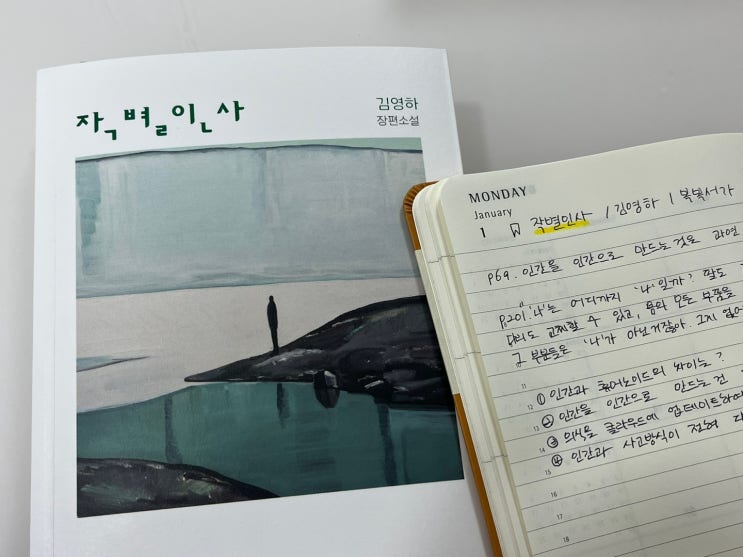 작별인사
김영하
장편소설
MONDAY
January
1 작별인사 / 김영하 / 복복서가
p69. 인간을 인간으로 만드는 것은 과연
p201 '나'는 어디까지 '나'일까? 팔도
다리도 교체할 수 있고, 몸의 모든 부품을
그 부분들은 '나'가 아닌거잖아. 그지 없어
11
① 인간과 휴머노이드의 차이는?
12
② 인간을 인간으로 만드는 건
13
③ 의식을 클라우드에 업데이트하여
14
④ 인간과 사고방식이 전혀 다
15
16
17
18